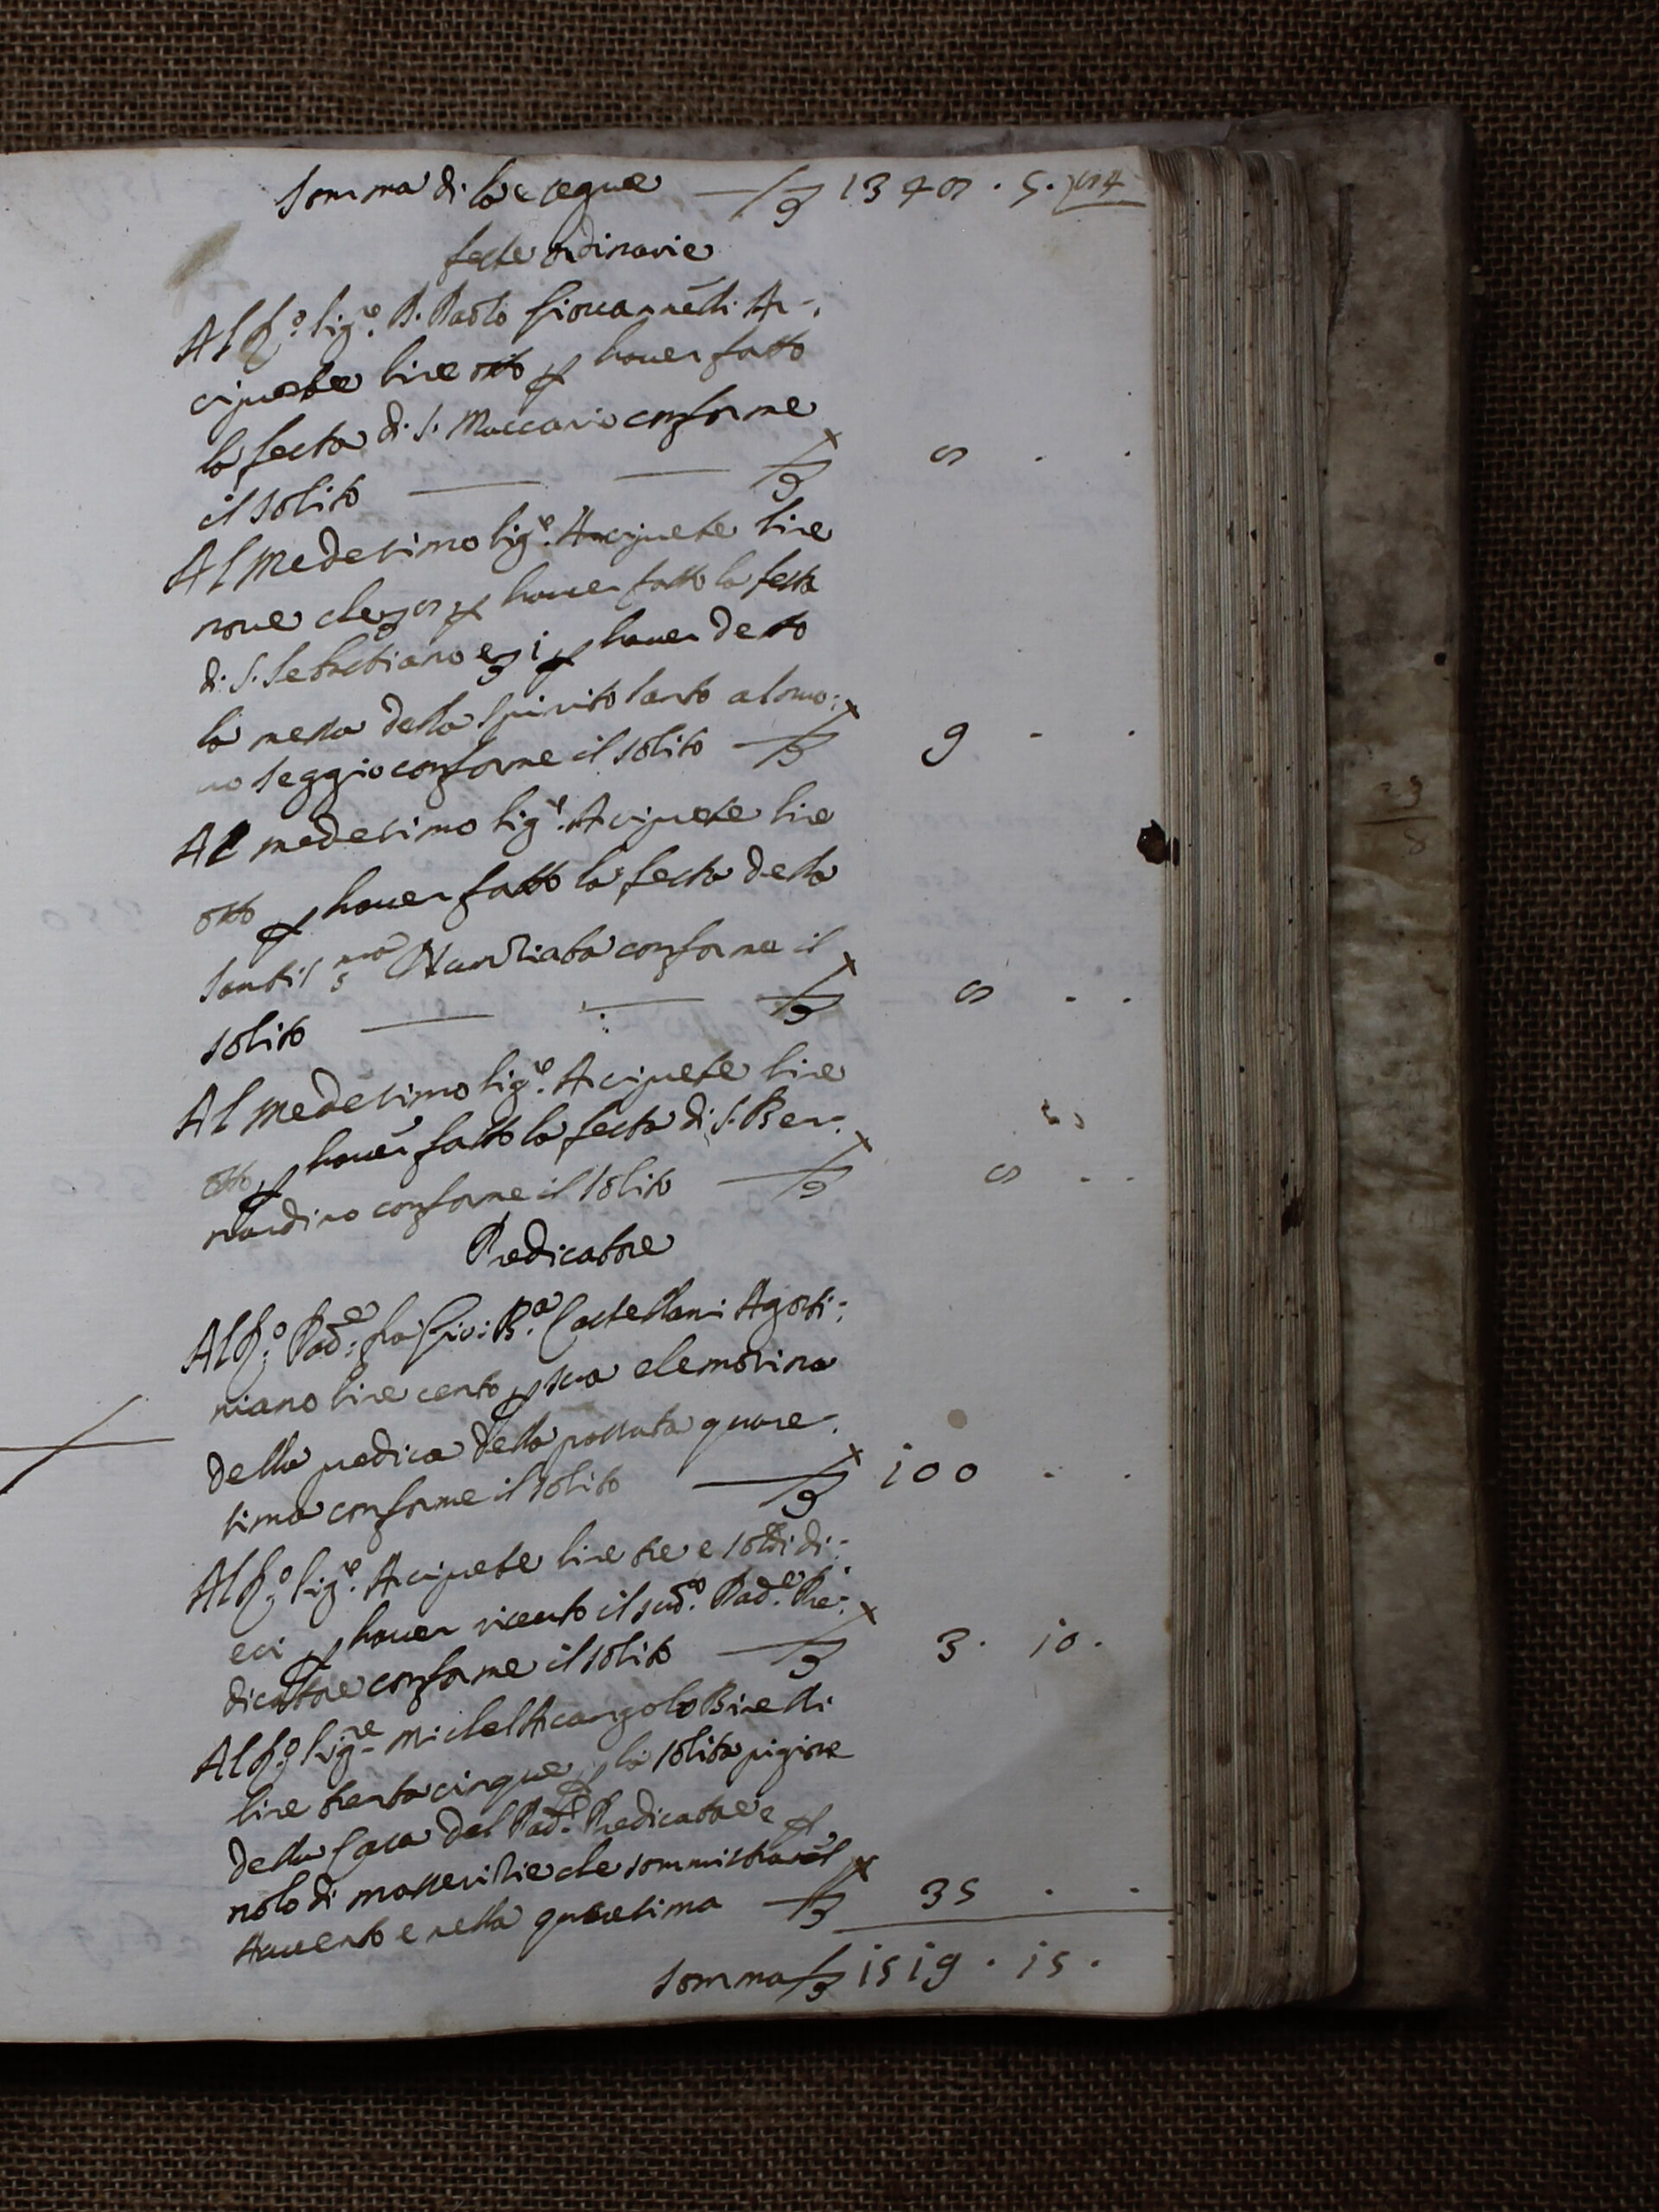 Somma di là e segue — £ 1348 . 5 . 4
feste ordinarie
Al R.º Sig.re P. Paolo Giovannelli Ar-
ciprete lire otto p haver fatto
la festa di S. Maccario conforme
il solito — — £ 8 . .
Al Medesimo Sig.re Arciprete lire
nove cioè £ 8 p haver fatto la festa
di S. Sebastiano e £ 1 p haver detto
la messa dello Spirito Santo al nuo:
vo seggio conforme il solito — £ 9 . .
Al medesimo Sig.re Arciprete lire
otto p haver fatto la festa della
Santiss.ma Nuntiata conforme il
solito — — £ 8 . .
Al Medesimo Sig.re Arciprete lire
otto p haver fatto la festa di S. Ber:
nardino conforme il solito — £ 8 . .
Predicatore
Al R.º Pad.e fra Gio: B.a Castellani Agosti:
niano lire cento p sua elemosina
della predica della passata quare:
sima conforme il solito — £ 100 . .
Al R.º Sig.re Arciprete lire tre e soldi di:
eci p haver riceuto il sud.º Pad.e Pre:
dicatore conforme il solito — £ 3 . 10 .
Al R.º Sig.re Michel Arcangolo Birelli
lire trenta cinque p la solita pigione
della Casa del Pad.e Predicatore e p
nolo di masserizie che somministra nel
Avvento e nella quaresima — £ 35 . .
Somma £ 1519 . 15 .